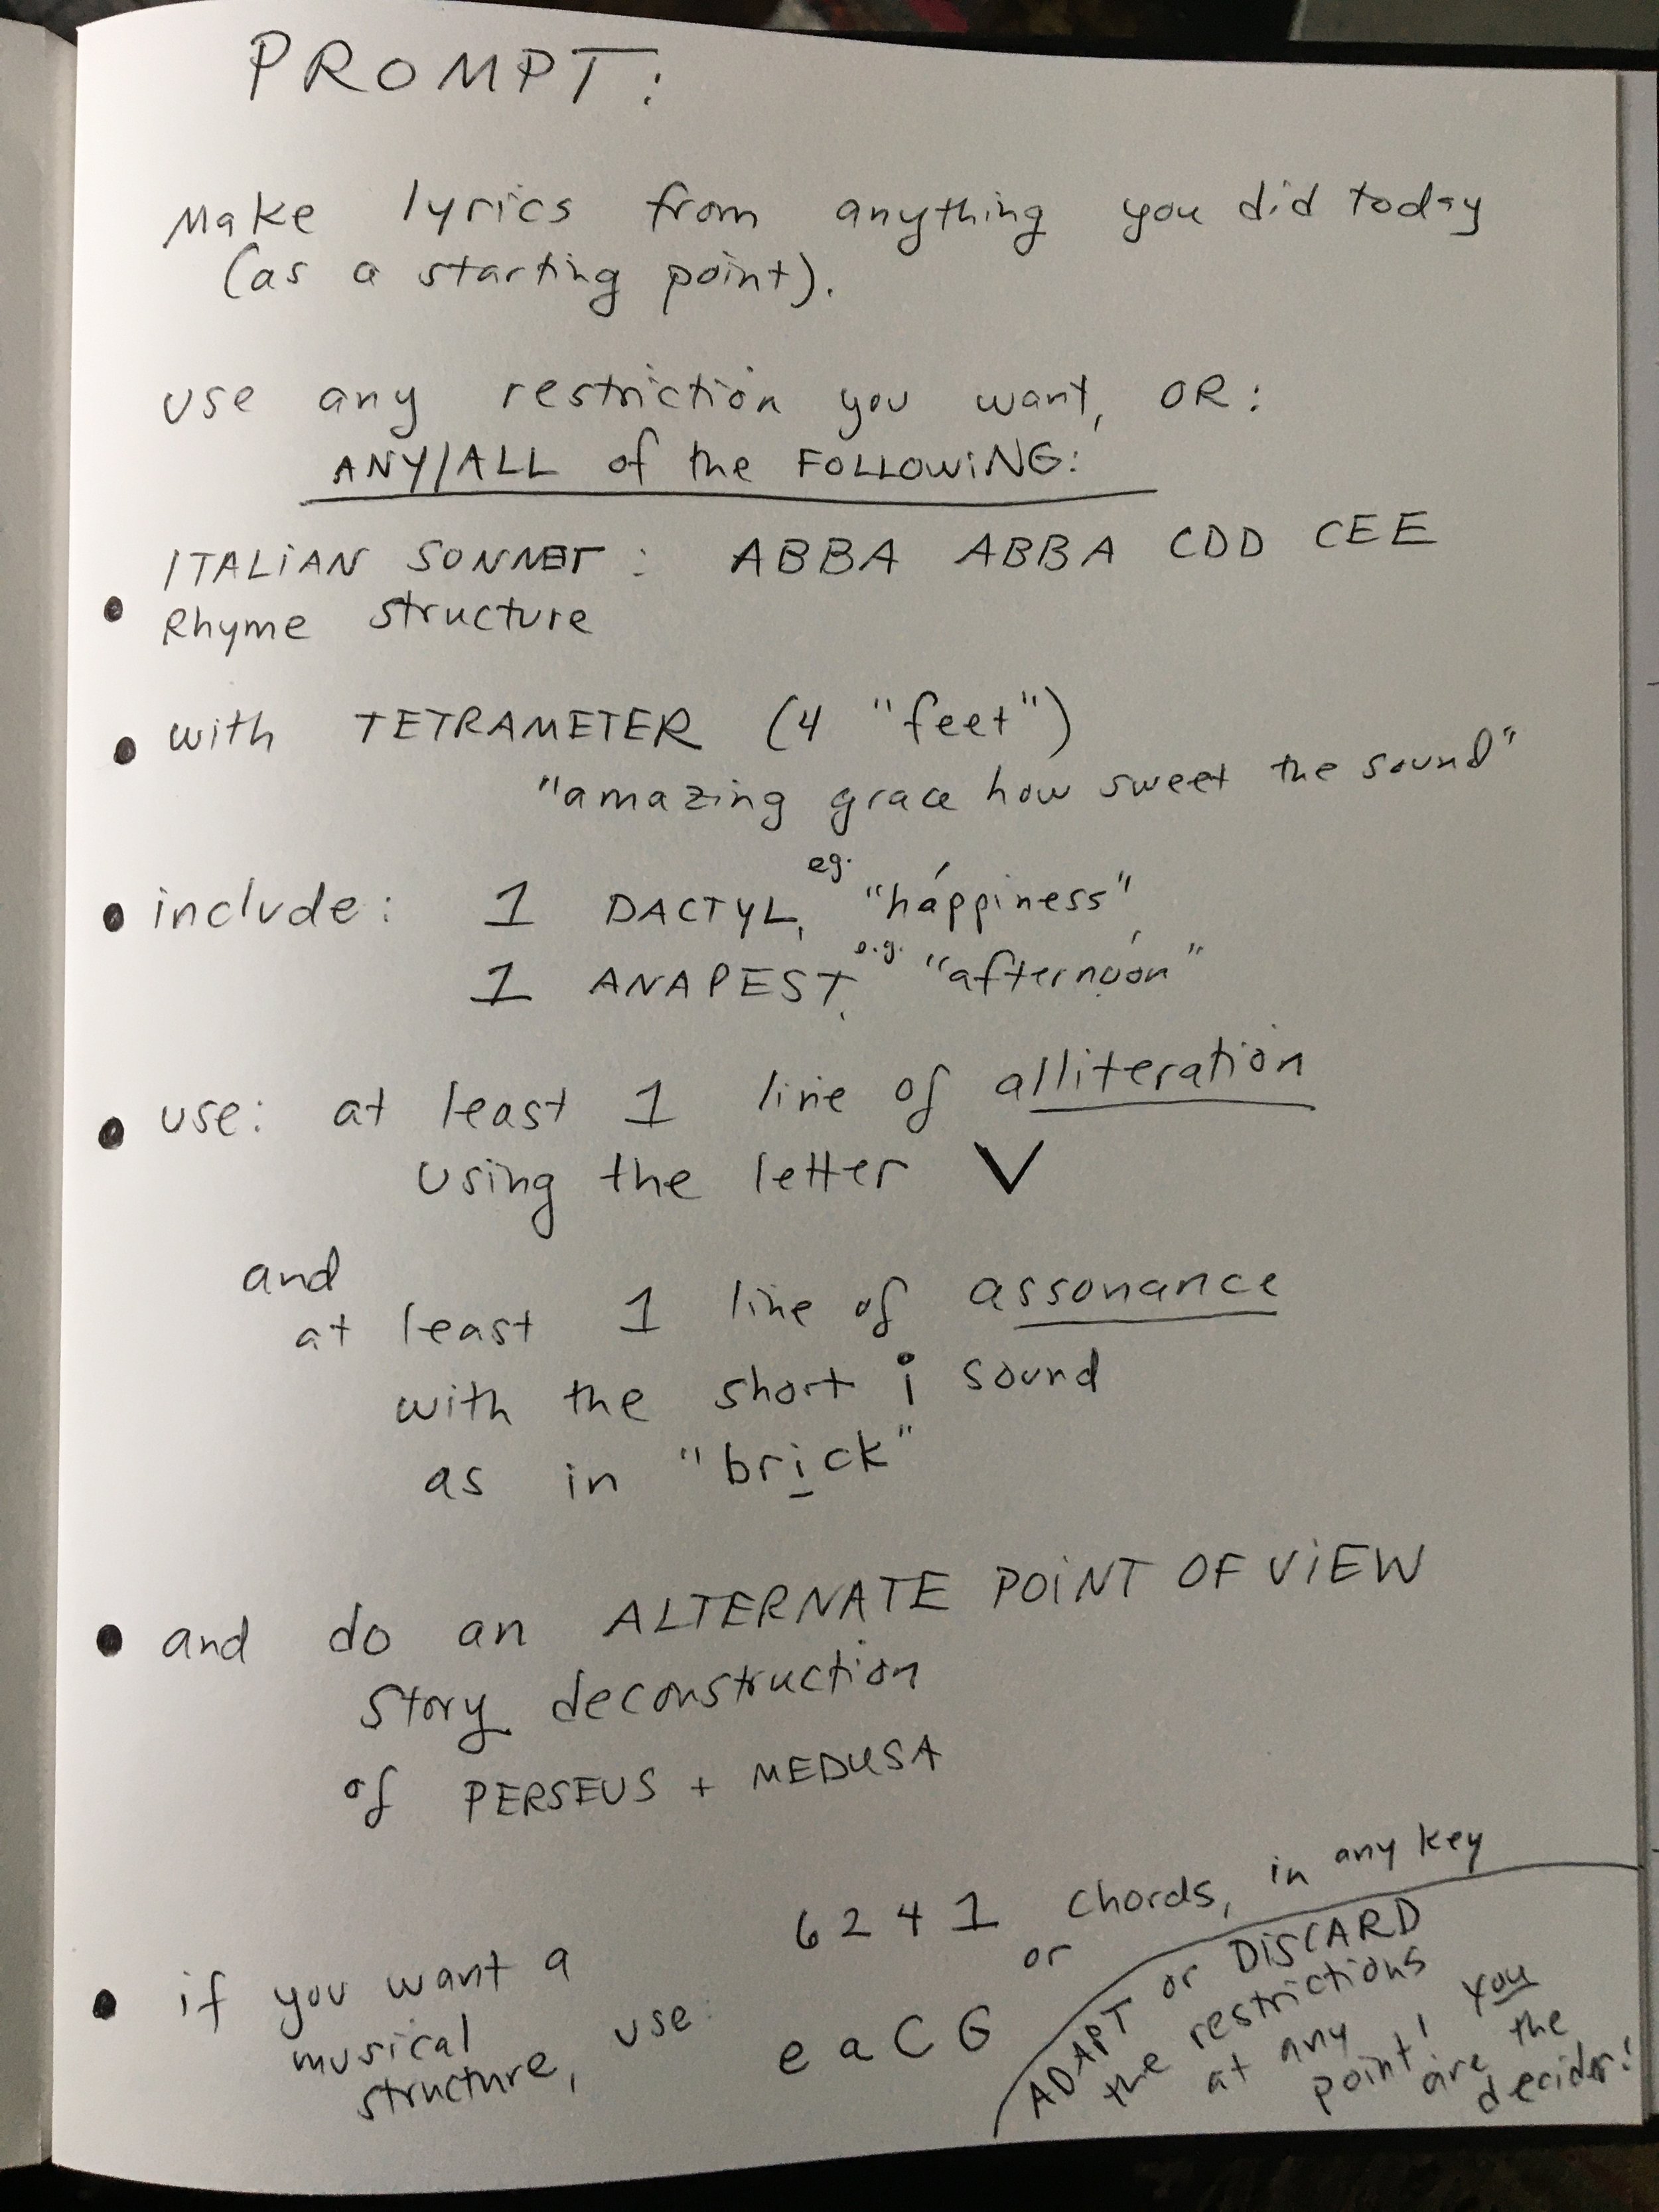 PROMPT:
Make lyrics from anything you did today
(as a starting point).
use any restriction you want, OR:
ANY/ALL of the FOLLOWING:
ITALIAN SONNET: ABBA ABBA CDD CEE
• Rhyme structure
• with TETRAMETER (4 "feet")
"amazing grace how sweet the sound"
• include: 1 DACTYL, eg. "háppiness",
1 ANAPEST, e.g. "afternóon"
• use: at least 1 line of alliteration
using the letter V
and
at least 1 line of assonance
with the short i sound
as in "brick"
• and do an ALTERNATE POINT OF VIEW
story deconstruction
of PERSEUS + MEDUSA
• if you want a
musical
structure, use:
6 2 4 1 chords, in any key
or
e a C G
ADAPT or DISCARD
the restrictions
at any
point! you
are the
decider!